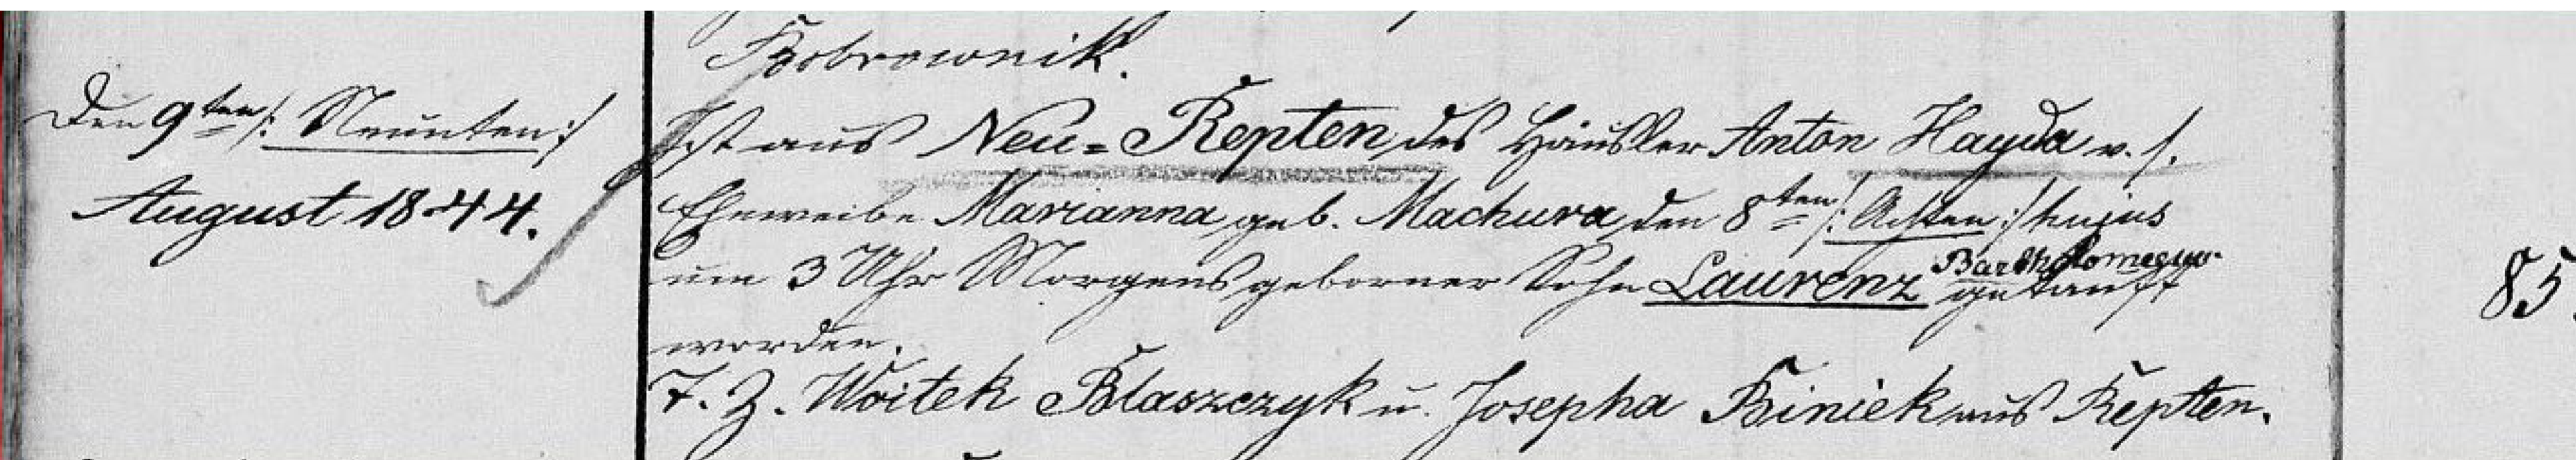 Bobrownik.
Den 9ten /: Neunten :/
August 1844.
Ist aus Neu=Repten des Häusler Anton Hayda v. s.
Eheweibe Marianna geb. Machura den 8ten /: Achten :/ hujus
um 3 Uhr Morgens geborner Sohn Laurenz Bartholomeus getauft
worden.
T. Z. Woitek Blaszczyk u. Josepha Biniek aus Repten.
85.